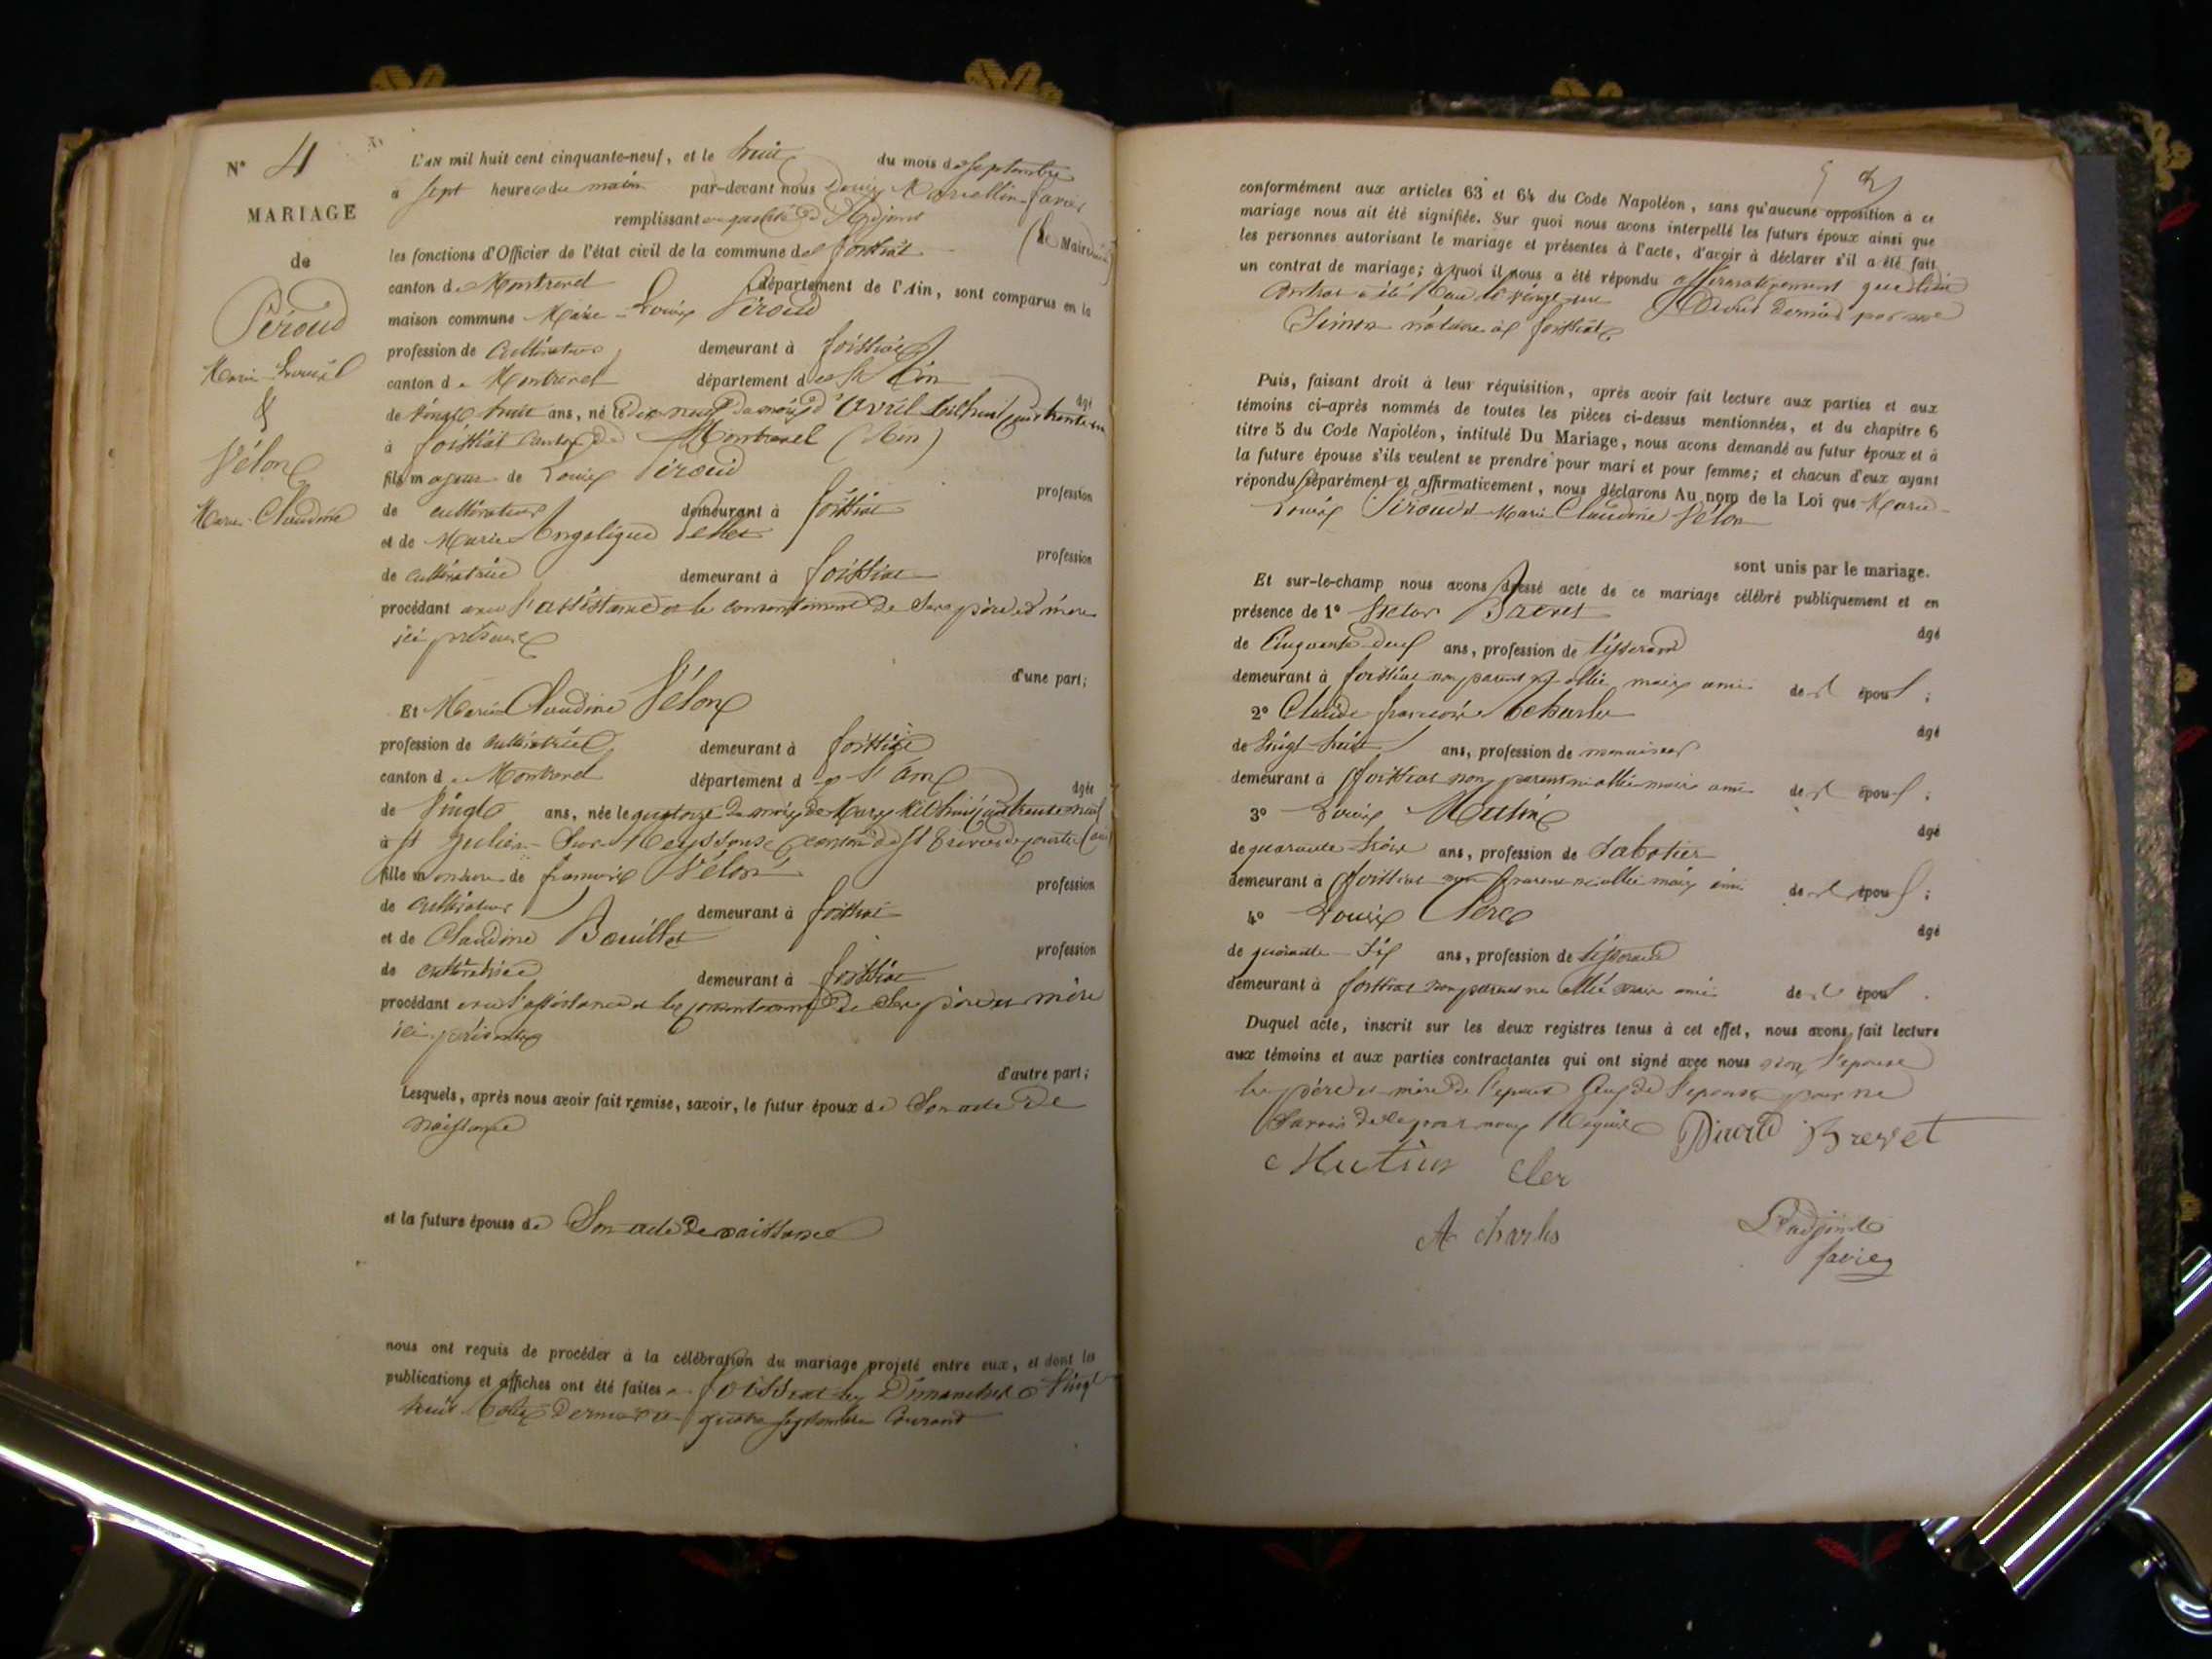 N° 4
MARIAGE
de
Péroud
Marie-Louis
&
Vélon
Marie-Claudine
L'AN mil huit cent cinquante-neuf, et le huit du mois de Septembre
à sept heures du matin par-devant nous Louis Marcellin favier
remplissant en qualité d'Adjoint
les fonctions d'Officier de l'état civil de la commune de foissiat
canton de Montrevel département de l'Ain, sont comparus en la
maison commune Marie-Louis Péroud
profession de Cultivateur demeurant à foissiat
canton de Montrevel département de l'Ain âgé
de vingt huit ans, né le dix neuf du mois d'avril mil huit cent trente un
à foissiat canton de Montrevel (Ain)
fils majeur de Louis Péroud profession
de cultivateur demeurant à foissiat
et de Marie Angelique profession
de cultivatrice demeurant à foissiat
procédant avec l'assistance et le consentement de ses père et mère
ici présents
d'une part;
Et Marie Claudine Vélon
profession de cultivatrice demeurant à foissiat
canton de Montrevel département de l'Ain âgée
de vingt ans, née le quatorze du mois de Mars mil huit cent trente neuf
à St Julien-Sur-Reyssouze canton de St Trivier de courtes (ain)
fille mineure de françois Vélon profession
de cultivateur demeurant à foissiat
et de Claudine Bouillet profession
de cultivatrice demeurant à foissiat
procédant avec l'assistance et le consentement de ses père et mère
ici présents
d'autre part;
Lesquels, après nous avoir fait remise, savoir, le futur époux de Son acte de
naissance
et la future épouse de Son acte de naissance
nous ont requis de procéder à la célébration du mariage projeté entre eux, et dont les
publications et affiches ont été faites à foissiat les Dimanches vingt
huit août dernier et quatre septembre Courant
conformément aux articles 63 et 64 du Code Napoléon, sans qu'aucune opposition à ce
mariage nous ait été signifiée. Sur quoi nous avons interpellé les futurs époux ainsi que
les personnes autorisant le mariage et présentes à l'acte, d'avoir à déclarer s'il a été fait
un contrat de mariage; à quoi il nous a été répondu affirmativement que le dit
Contrat a été le vingt un dernier par me
Simon notaire à foissiat
Puis, faisant droit à leur réquisition, après avoir fait lecture aux parties et aux
témoins ci-après nommés de toutes les pièces ci-dessus mentionnées, et du chapitre 6
titre 5 du Code Napoléon, intitulé Du Mariage, nous avons demandé au futur époux et à
la future épouse s'ils veulent se prendre pour mari et pour femme; et chacun d'eux ayant
répondu séparément et affirmativement, nous déclarons Au nom de la Loi que Marie-
Louis Péroud et Marie Claudine Vélon
sont unis par le mariage.
Et sur-le-champ nous avons dressé acte de ce mariage célébré publiquement et en
présence de 1° Victor Brevet âgé
de Cinquante deux ans, profession de tisserand
demeurant à foissiat non parent ni allié mais ami de l'époux;
2° Claude françois Charles âgé
de vingt huit ans, profession de menuisier
demeurant à foissiat non parent ni allié mais ami de l'époux;
3° Louis Mutin âgé
de quarante trois ans, profession de Sabotier
demeurant à foissiat non parent ni allié mais ami de l'époux;
4° Louis Clerc âgé
de quarante-six ans, profession de tisserand
demeurant à foissiat non parent ni allié mais ami de l'époux.
Duquel acte, inscrit sur les deux registres tenus à cet effet, nous avons fait lecture
aux témoins et aux parties contractantes qui ont signé avec nous non l'épouse
les père et mère de l'époux de l'épouse pour ne
Savoir de ce par nous Requis Brevet
Mutin Cler
A charles L'adjoint
favier